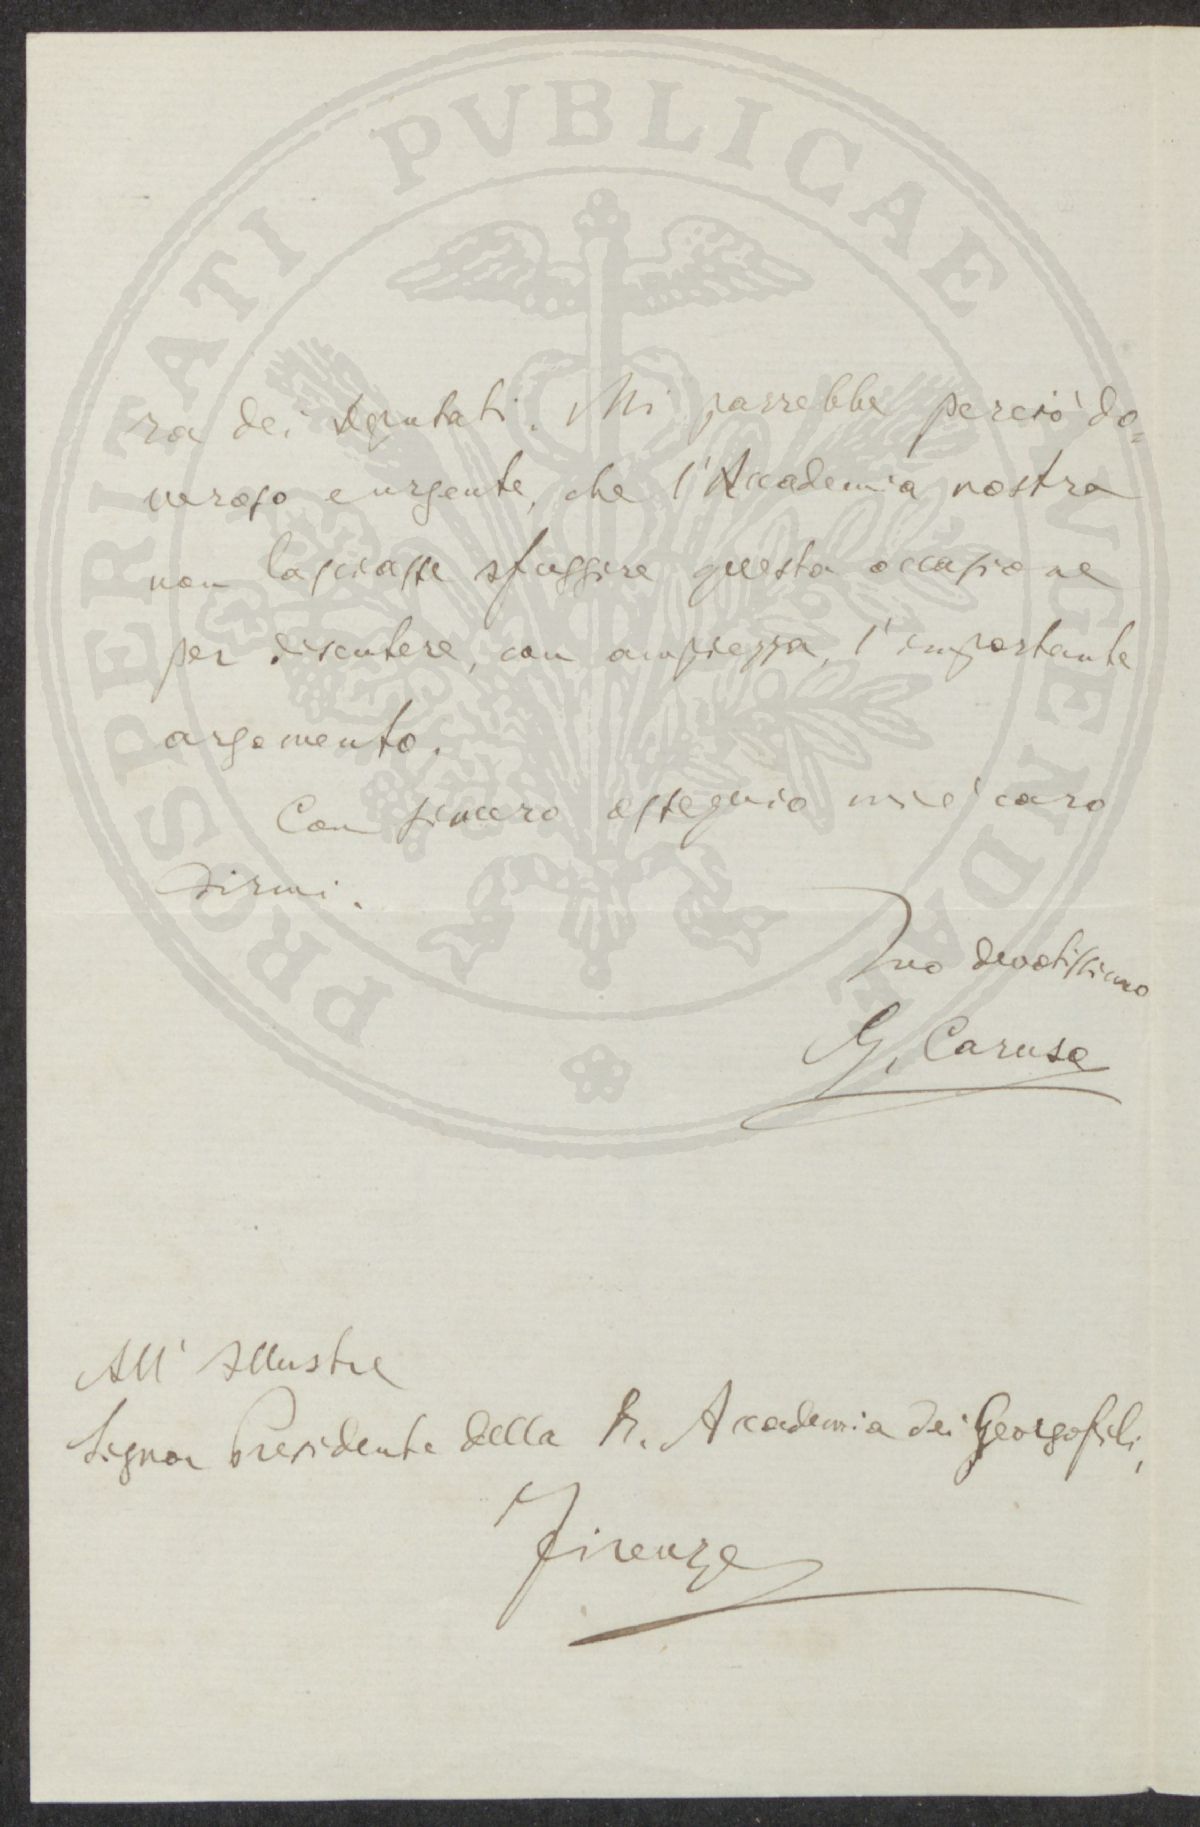 PROSPERITATI PVBLICAE AVGENDAE
ra dei Deputati. Mi parrebbe perciò do=
veroso e urgente, che l'Accademia nostra
non lasciasse sfuggire questa occasione
per discutere, con ampiezza, l'importante
argomento.
Con sincero ossequio mi è caro
dirmi.
Suo devotissimo
G. Caruso
All' Illustre
Signor Presidente della R. Accademia dei Georgofili,
Firenze